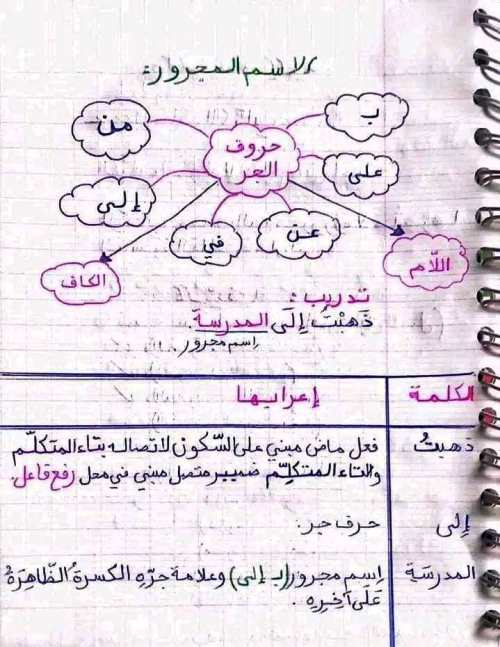 الاسم المجرور:
حروف
الجر
ب
من
على
إلى
عن
في
اللّام
الكاف
تدريب:
ذَهبْتُ إِلَى المدرسةَ.
اِسم مجرور
الكلمة
إعرابها
ذهبتُ
فعل ماض مبني على السّكون لاتصاله بتاء المتكلّم
والتاء المتكلِّم ضمير متصل مبني في محل رفع فاعل.
إِلى
حرف جر.
المدرسَةِ
اِسم مجرور (بـ إلى) وعلامة جرّه الكسرةُ الظّاهِرَةُ
عَلَى آخِرِهِ.